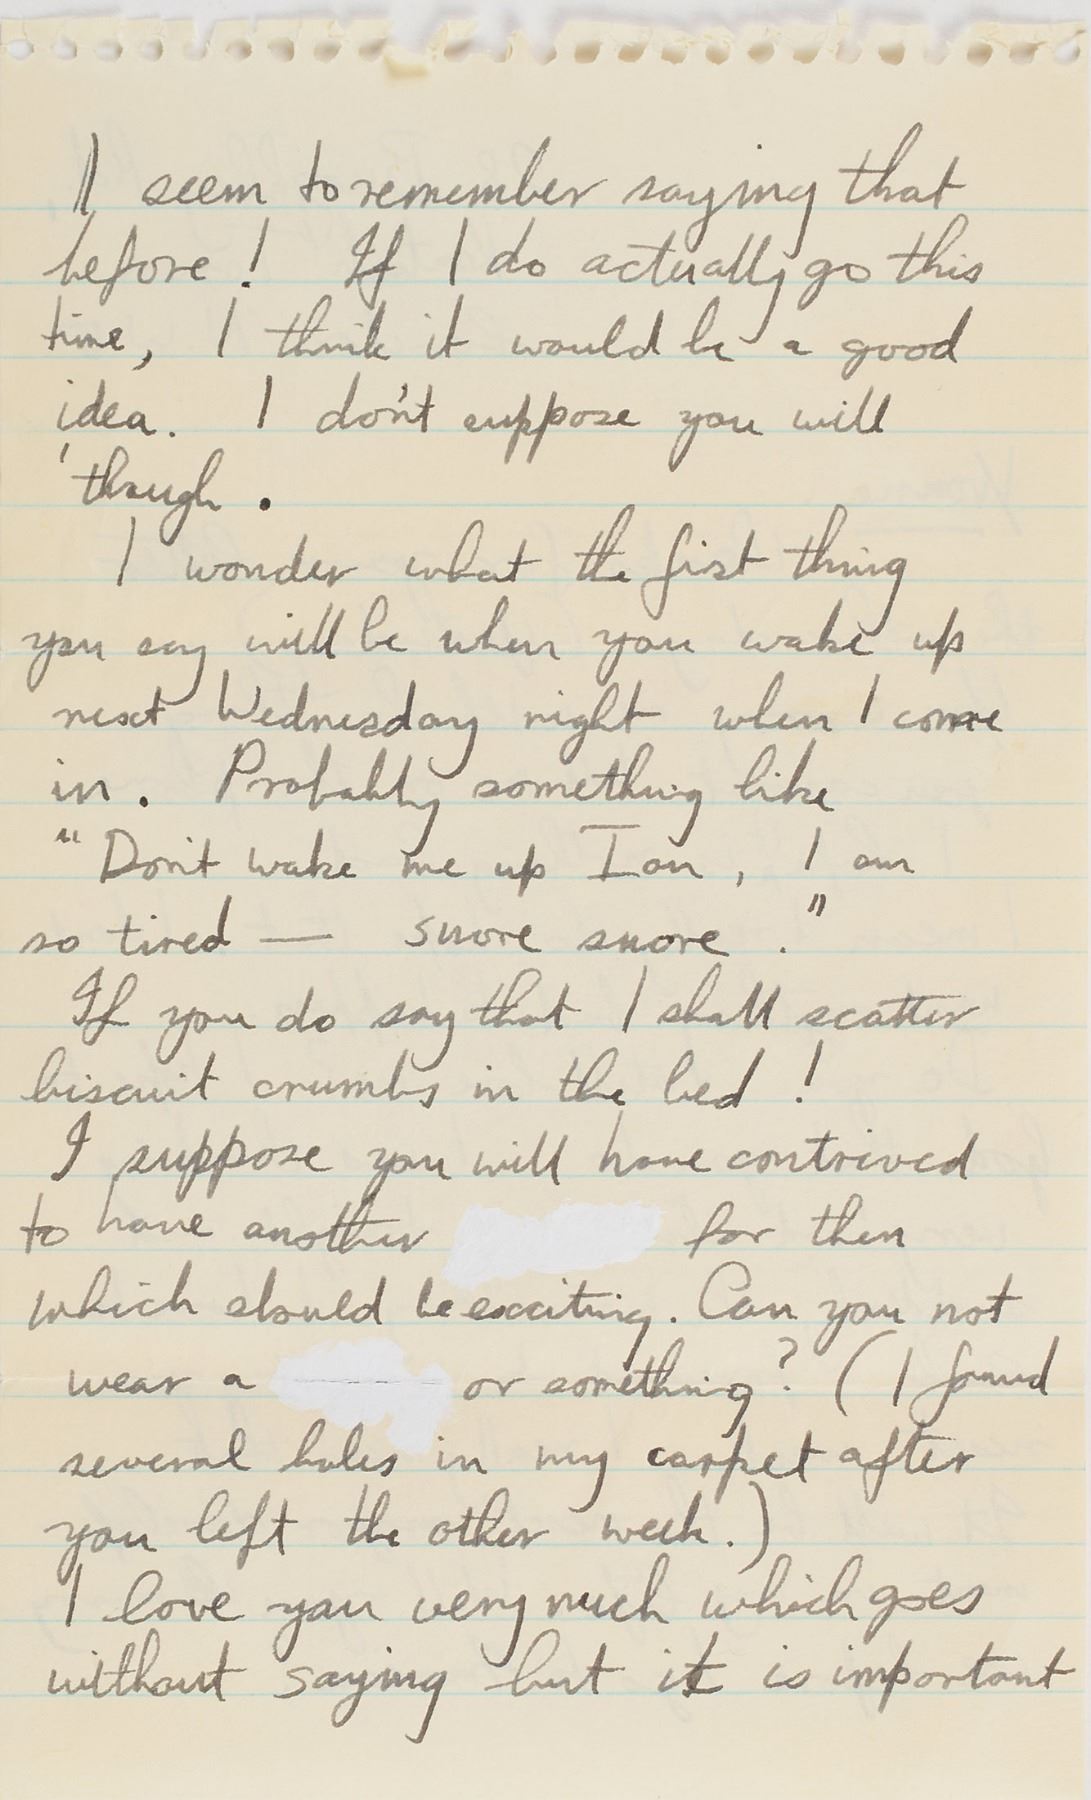 I seem to remember saying that
before! If I do actually go this
time, I think it would be a good
idea. I don't suppose you will
though.
I wonder what the first thing
you say will be when you wake up
next Wednesday night when I come
in. Probably something like
"Don't wake me up Ian, I am
so tired — snore snore."
If you do say that I shall scatter
biscuit crumbs in the bed!
I suppose you will have contrived
to have another for then
which should be exciting. Can you not
wear a or something? (I found
several holes in my carpet after
you left the other week.)
I love you very much which goes
without saying but it is important